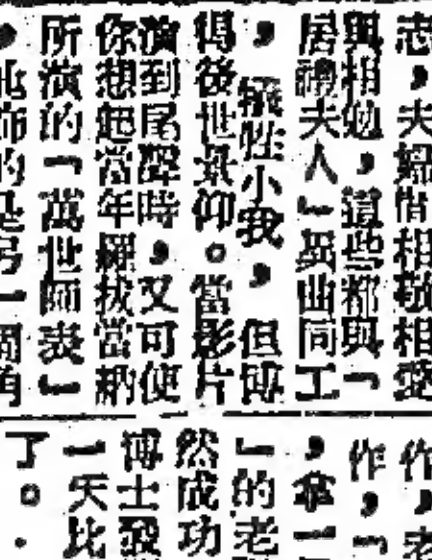 志，夫婦相敬相愛
與相勉，這些都與「
居禮夫人」異曲同工
，犧牲小我，但博
得後世景仰。當影片
演到尾聲時，又可使
你想起當年羅拔當納
所演的「萬世師表」
，他飾的是另一個角
作，
作，「
，拿一
」的老
然成功
博士發
一天比
了。